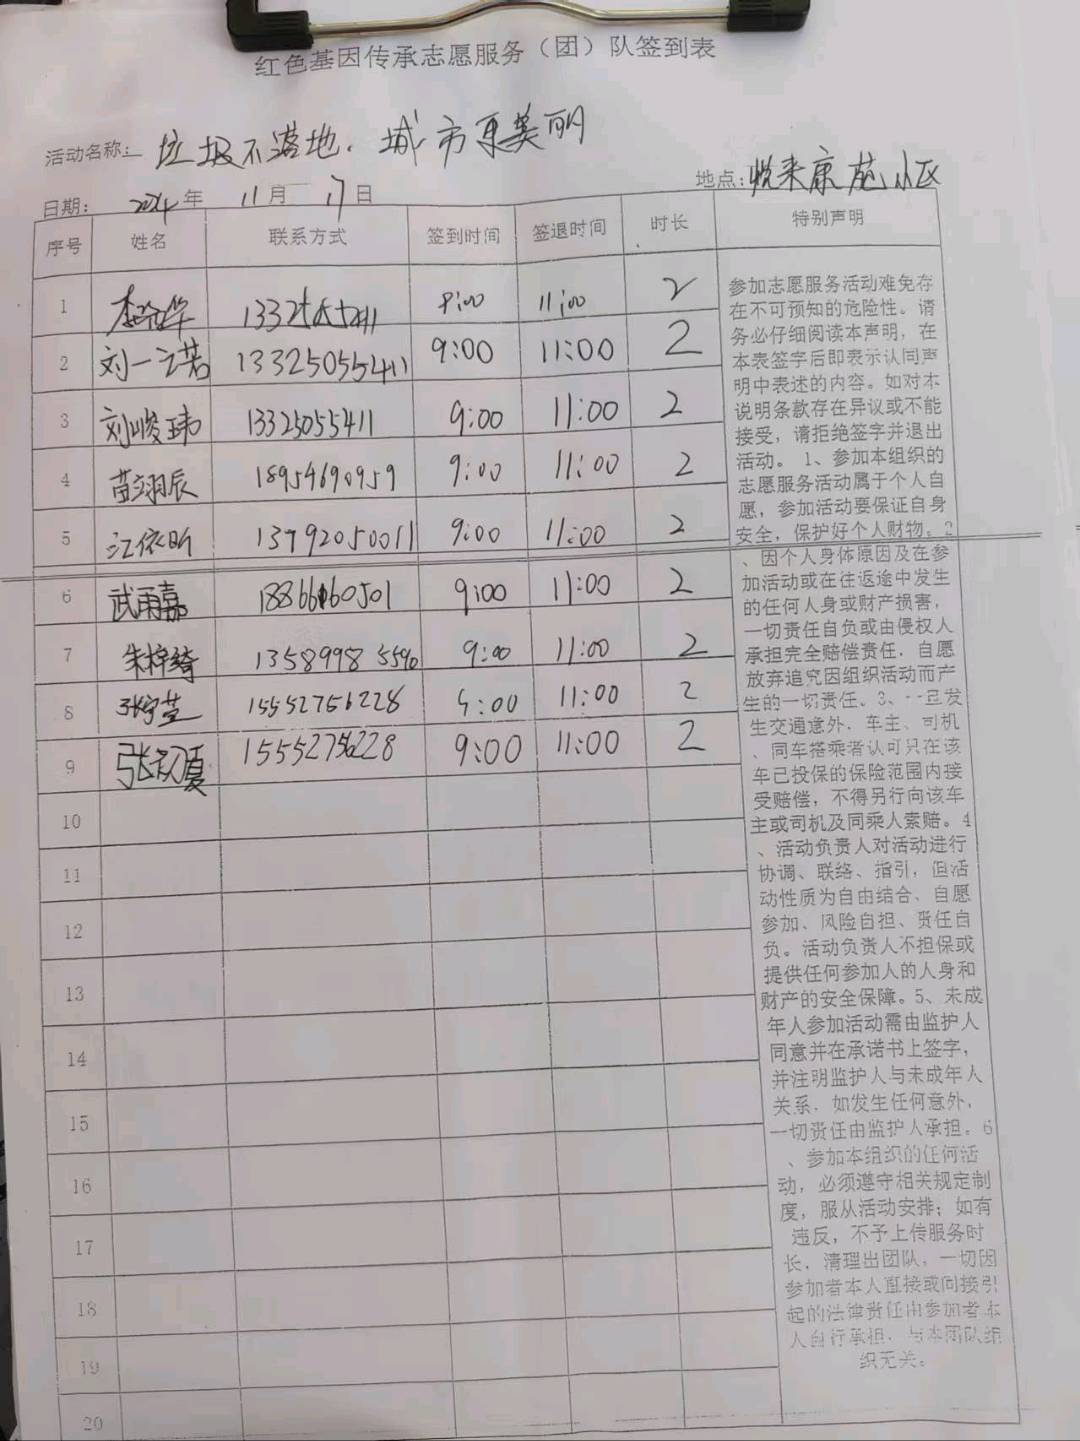 红色基因传承志愿服务（团）队签到表
活动名称: 垃圾不落地.城市更美丽
日期: 2024年 11月 17日 地点: 悦来康苑小区
序号 姓名 联系方式 签到时间 签退时间 时长 特别声明
1 9:00 11:00 2
2 刘一诺 133250555411 9:00 11:00 2
3 刘峻玮 13325055411 9:00 11:00 2
4 苗翊辰 18954690959 9:00 11:00 2
5 江依昕 13792050011 9:00 11:00 2
6 武雨嘉 9:00 11:00 2
7 朱梓绮 9:00 11:00 2
8 15552756228 9:00 11:00 2
9 15552756228 9:00 11:00 2
10
11
12
13
14
15
16
17
18
19
20
参加志愿服务活动难免存
在不可预知的危险性。请
务必仔细阅读本声明，在
本表签字后即表示认同声
明中表述的内容。如对本
说明条款存在异议或不能
接受，请拒绝签字并退出
活动。1、参加本组织的
志愿服务活动属于个人自
愿，参加活动要保证自身
安全，保护好个人财物。2
、因个人身体原因及在参
加活动或在往返途中发生
的任何人身或财产损害，
一切责任自负或由侵权人
承担完全赔偿责任，自愿
放弃追究因组织活动而产
生的一切责任。3、一旦发
生交通意外，车主、司机
、同车搭乘者认可只在该
车已投保的保险范围内接
受赔偿，不得另行向该车
主或司机及同乘人索赔。4
、活动负责人对活动进行
协调、联络、指引，但活
动性质为自由结合、自愿
参加、风险自担、责任自
负。活动负责人不担保或
提供任何参加人的人身和
财产的安全保障。5、未成
年人参加活动需由监护人
同意并在承诺书上签字，
并注明监护人与未成年人
关系，如发生任何意外，
一切责任由监护人承担。6
、参加本组织的任何活
动，必须遵守相关规定制
度，服从活动安排；如有
违反，不予上传服务时
长，清理出团队，一切因
参加者本人直接或间接引
起的法律责任由参加者本
人自行承担，与本团队组
织无关。